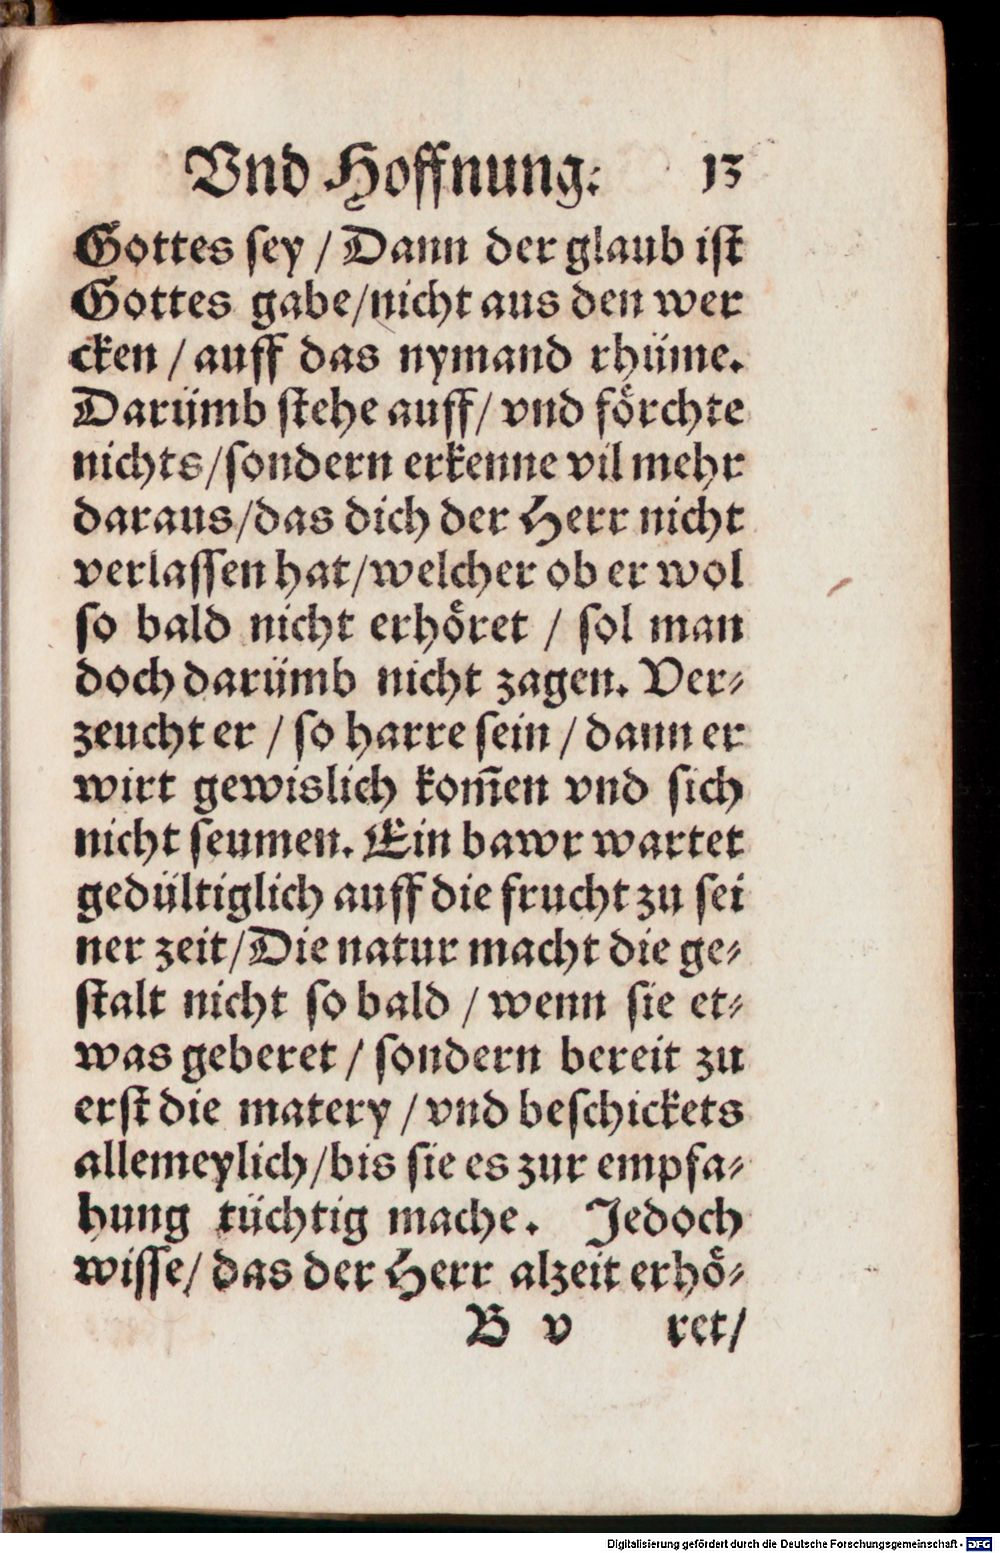 Vnd Hoffnung. 13
Gottes sey / Dann der glaub ist
Gottes gabe/nicht aus den wer
cken / auff das nymand rhüme.
Darümb stehe auff/ vnd förchte
nichts/sondern erkenne vil mehr
daraus/das dich der Herr nicht
verlassen hat/welcher ob er wol
so bald nicht erhöret / sol man
doch darümb nicht zagen. Ver-
zeucht er / so harre sein / dann er
wirt gewislich kom̄en vnd sich
nicht seumen. Ein bawr wartet
gedültiglich auff die frucht zu sei
ner zeit/Die natur macht die ge-
stalt nicht so bald / wenn sie et-
was geberet / sondern bereit zu
erst die matery / vnd beschickets
allemeylich/bis sie es zur empfa-
hung tüchtig mache. Jedoch
wisse/ das der Herr alzeit erhö-
B v ret/
Digitalisierung gefördert durch die Deutsche Forschungsgemeinschaft - DFG